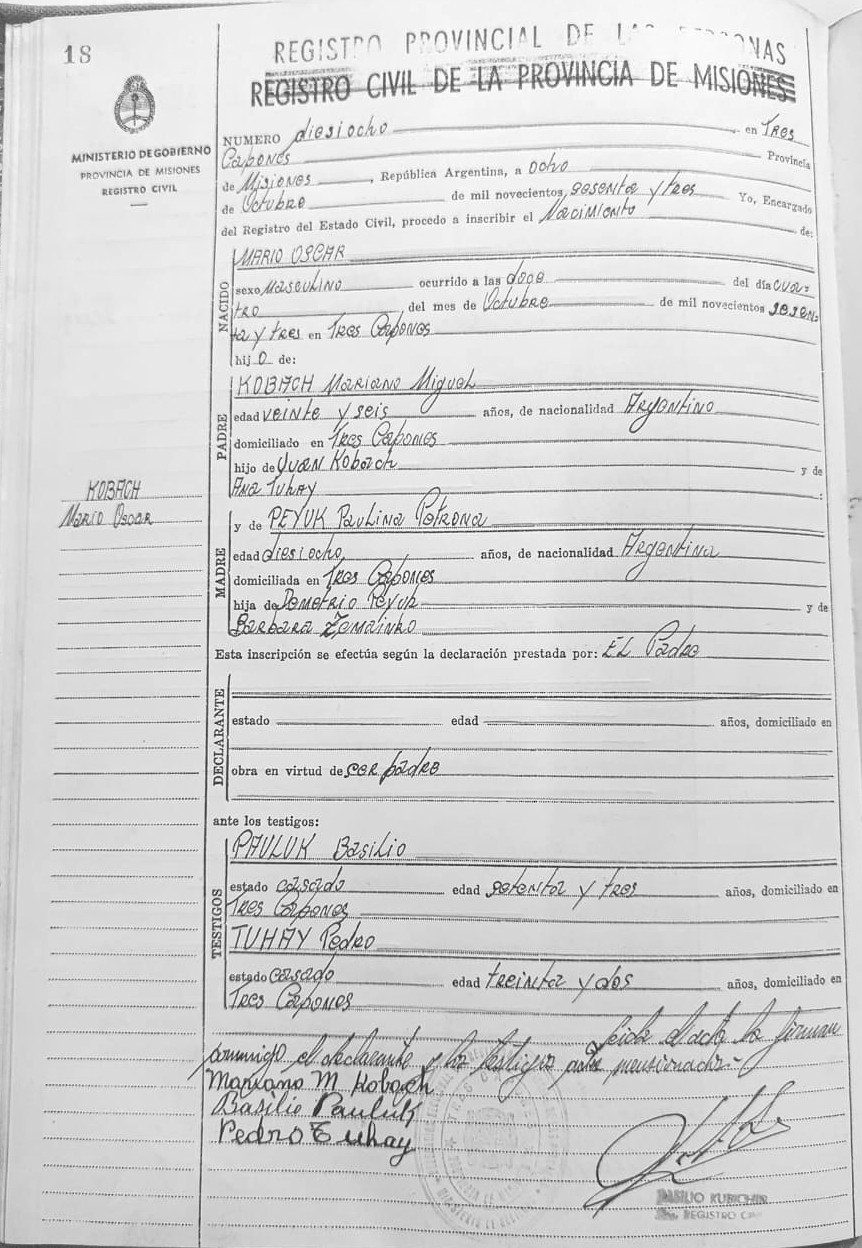 18
REGISTRO PROVINCIAL DE LAS PERSONAS
REGISTRO CIVIL DE LA PROVINCIA DE MISIONES
MINISTERIO DE GOBIERNO
PROVINCIA DE MISIONES
REGISTRO CIVIL
NUMERO diesiocho en Tres
Capones Provincia
de Misiones, República Argentina, a ocho
de Octubre de mil novecientos sesenta y tres Yo, Encargado
del Registro del Estado Civil, procedo a inscribir el Nacimiento de:
NACIDO
MARIO OSCAR
sexo Masculino ocurrido a las doce del día cua=
tro del mes de Octubre de mil novecientos sesen=
ta y tres en Tres Capones
hijo de:
PADRE
KOBACH Mariano Miguel
edad veinte y seis años, de nacionalidad Argentino
domiciliado en Tres Capones
hijo de Juan Kobach y de
Ana Tuhay :
KOBACH
Mario Oscar
MADRE
y de PEYUK Paulina Petrona
edad diesiocho años, de nacionalidad Argentina
domiciliada en Tres Capones
hija de Demetrio Peyuk y de
Barbara Zemainko
Esta inscripción se efectúa según la declaración prestada por: EL Padre
DECLARANTE
estado edad años, domiciliado en
obra en virtud de ser padre
ante los testigos:
TESTIGOS
PAULUK Basilio
estado casado edad setenta y tres años, domiciliado en
Tres Capones
TUHAY Pedro
estado casado edad treinta y dos años, domiciliado en
Tres Capones
Leida el acta la firman
conmigo el declarante y los testigos antes mensionados=
Mariano M. Kobach
Basilio Pauluk
Pedro Tuhay
BASILIO KUBICHEN
REGISTRO CIVIL